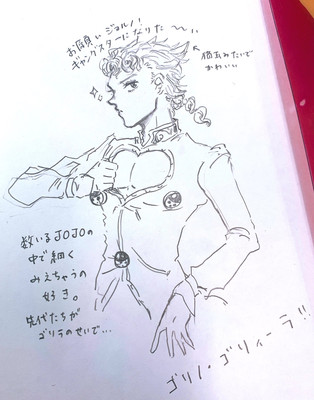 お願い ジョルノ!
ギャングスターになりた〜い
←猫みたいで
かわいい
数いるJOJOの
中で細く
みえちゃうの
好き。
先代たちが
ゴリラのせいで…
ゴリノ・ゴリィーラ!!